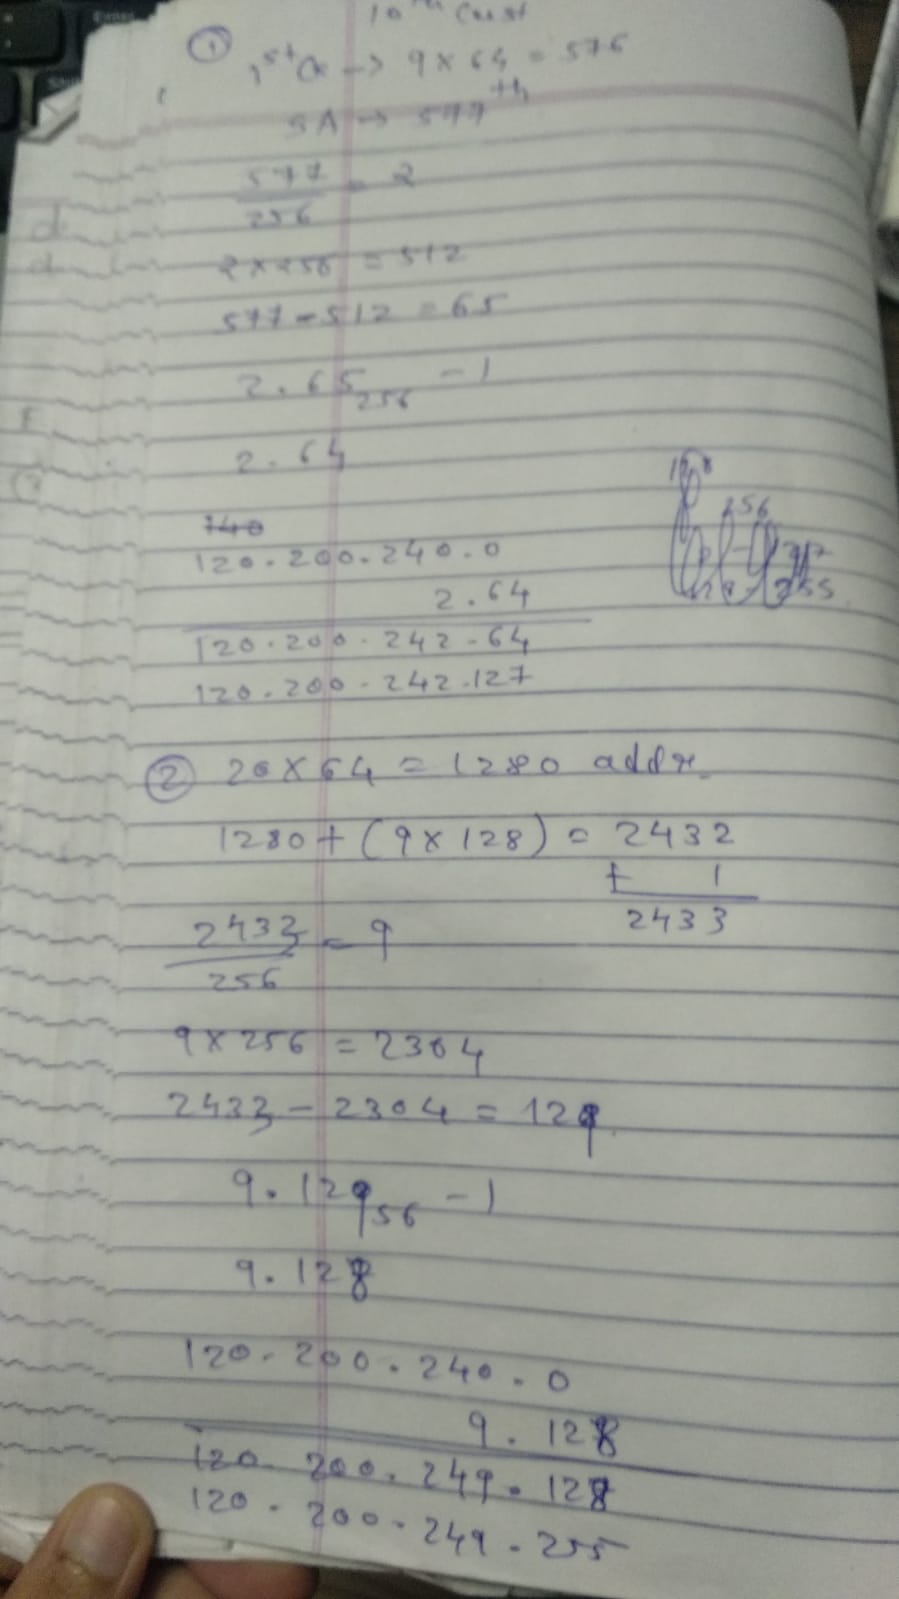 10th Cust
① 1st Cx → 9 × 64 = 576
SA → 577th
577/256 = 2
2 × 256 = 512
577 - 512 = 65
2.65₂₅₆ - 1
2.64
140
120.200.240.0
2.64
120.200.242.64
120.200.242.127
256
② 20 × 64 = 1280 addr.
1280 + (9 × 128) = 2432
+ 1
2433
2433/256 = 9
9 × 256 = 2304
2433 - 2304 = 129
9.129 56 - 1
9.128
120.200.240.0
9.128
120.200.249.128
120.200.249.255